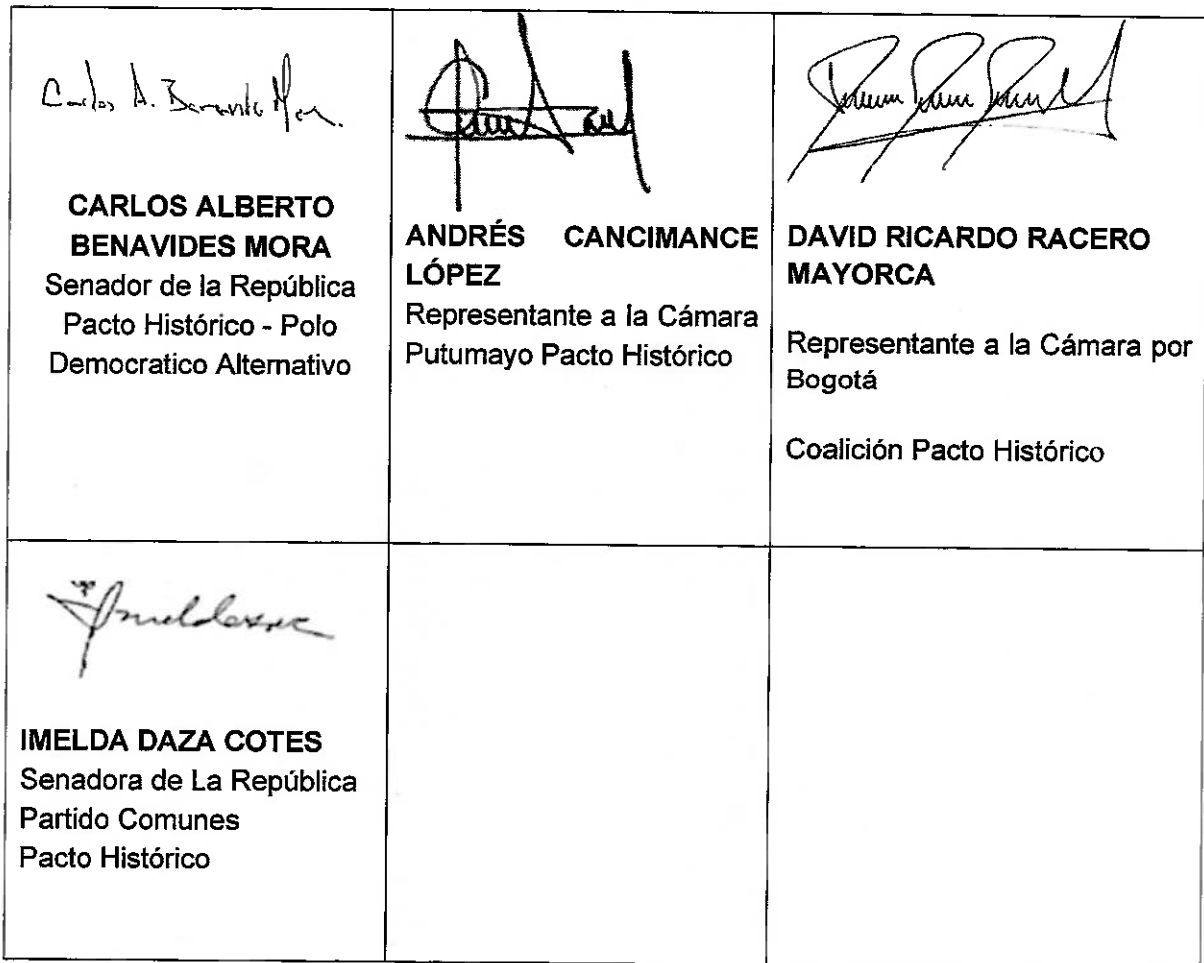 Carlos A. Benavides Mora.
CARLOS ALBERTO
BENAVIDES MORA
Senador de la República
Pacto Histórico - Polo
Democratico Alternativo
ANDRÉS CANCIMANCE
LÓPEZ
Representante a la Cámara
Putumayo Pacto Histórico
DAVID RICARDO RACERO
MAYORCA
Representante a la Cámara por
Bogotá
Coalición Pacto Histórico
IMELDA DAZA COTES
Senadora de La República
Partido Comunes
Pacto Histórico